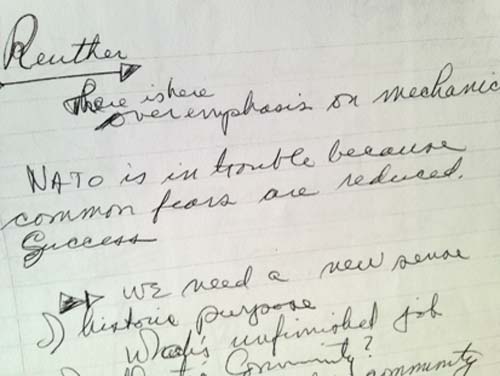 Reuther
There is here
overemphasis on mechanic
NATO is in trouble because
common fears are reduced.
Success
WE need a new sense
historic purpose
What's unfinished job
Community?
community